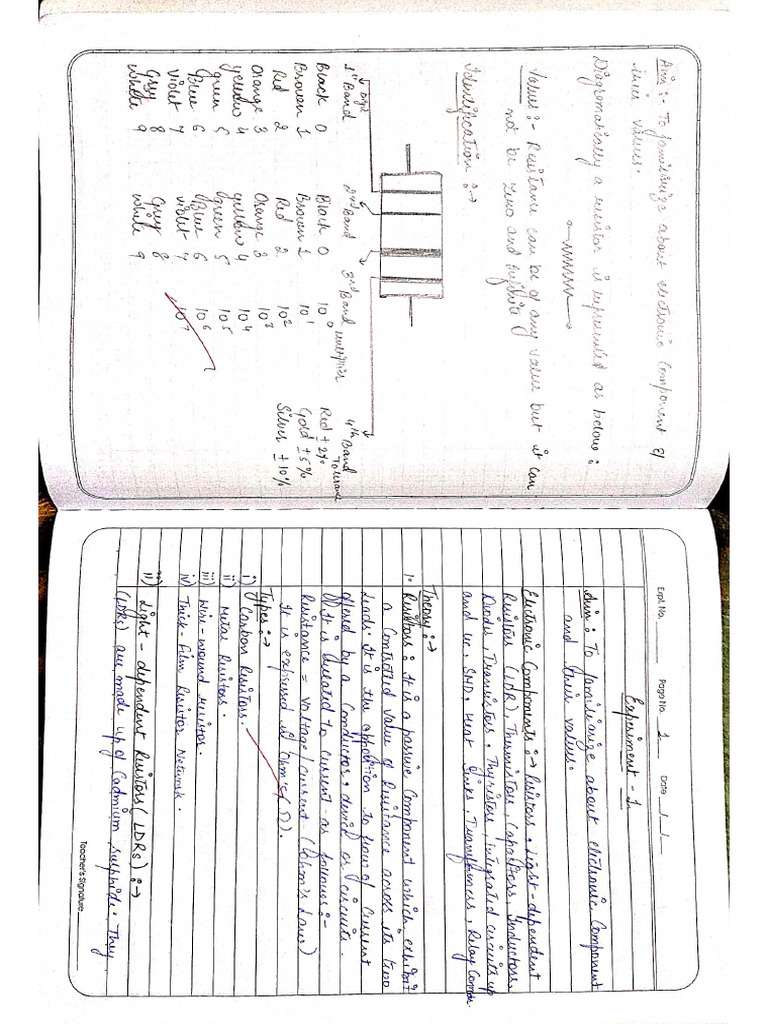 Aim :- To familiarize about electronic component &
their values.
Diagramatically a resistor is represented as below :
Value :- Resistance can be of any value but it can
not be zero and infinite
Identification :→
1st Band 2nd Band 3rd Band Multiplier 4th Band Tolerance
Black 0 Black 0 10⁰ Red ± 2%
Brown 1 Brown 1 10¹ Gold ± 5%
Red 2 Red 2 10² Silver ± 10%
Orange 3 Orange 3 10³
yellow 4 yellow 4 10⁴
green 5 green 5 10⁵
Blue 6 Blue 6 10⁶
violet 7 violet 7 10⁷
Grey 8 Grey 8
white 9 white 9
Expt. No. Page No. 1 Date
Experiment - 1
Aim : To familiarize about electronic component
and their values.
Electronic Components :→ Resistors, Light-dependent
Resistor (LDR), Thermistors, Capacitors, Inductors,
Diodes, Transistors, Thyristors, Integrated circuits
and uc, SMD, Heat sinks, Transformers, Relay
Theory :→
1. Resistors : It is a passive component which exhibit
a controlled value of resistance across its two
leads. It is the opposition to flow of current
offered by a conductor, device or circuits.
It is related to current as follows :-
Resistance = Voltage/current (Ohm's Law)
It is expressed is Ohm's (Ω).
Types :→
i) Carbon Resistors.
ii) Metal Resistors.
iii) Wire-wound resistors.
iv) Thick-Film Resistor Network.
ii) Light-dependent Resistors (LDRs) :→
(LDRs) are made up of Cadmium sulphide. They
Teacher's Signature